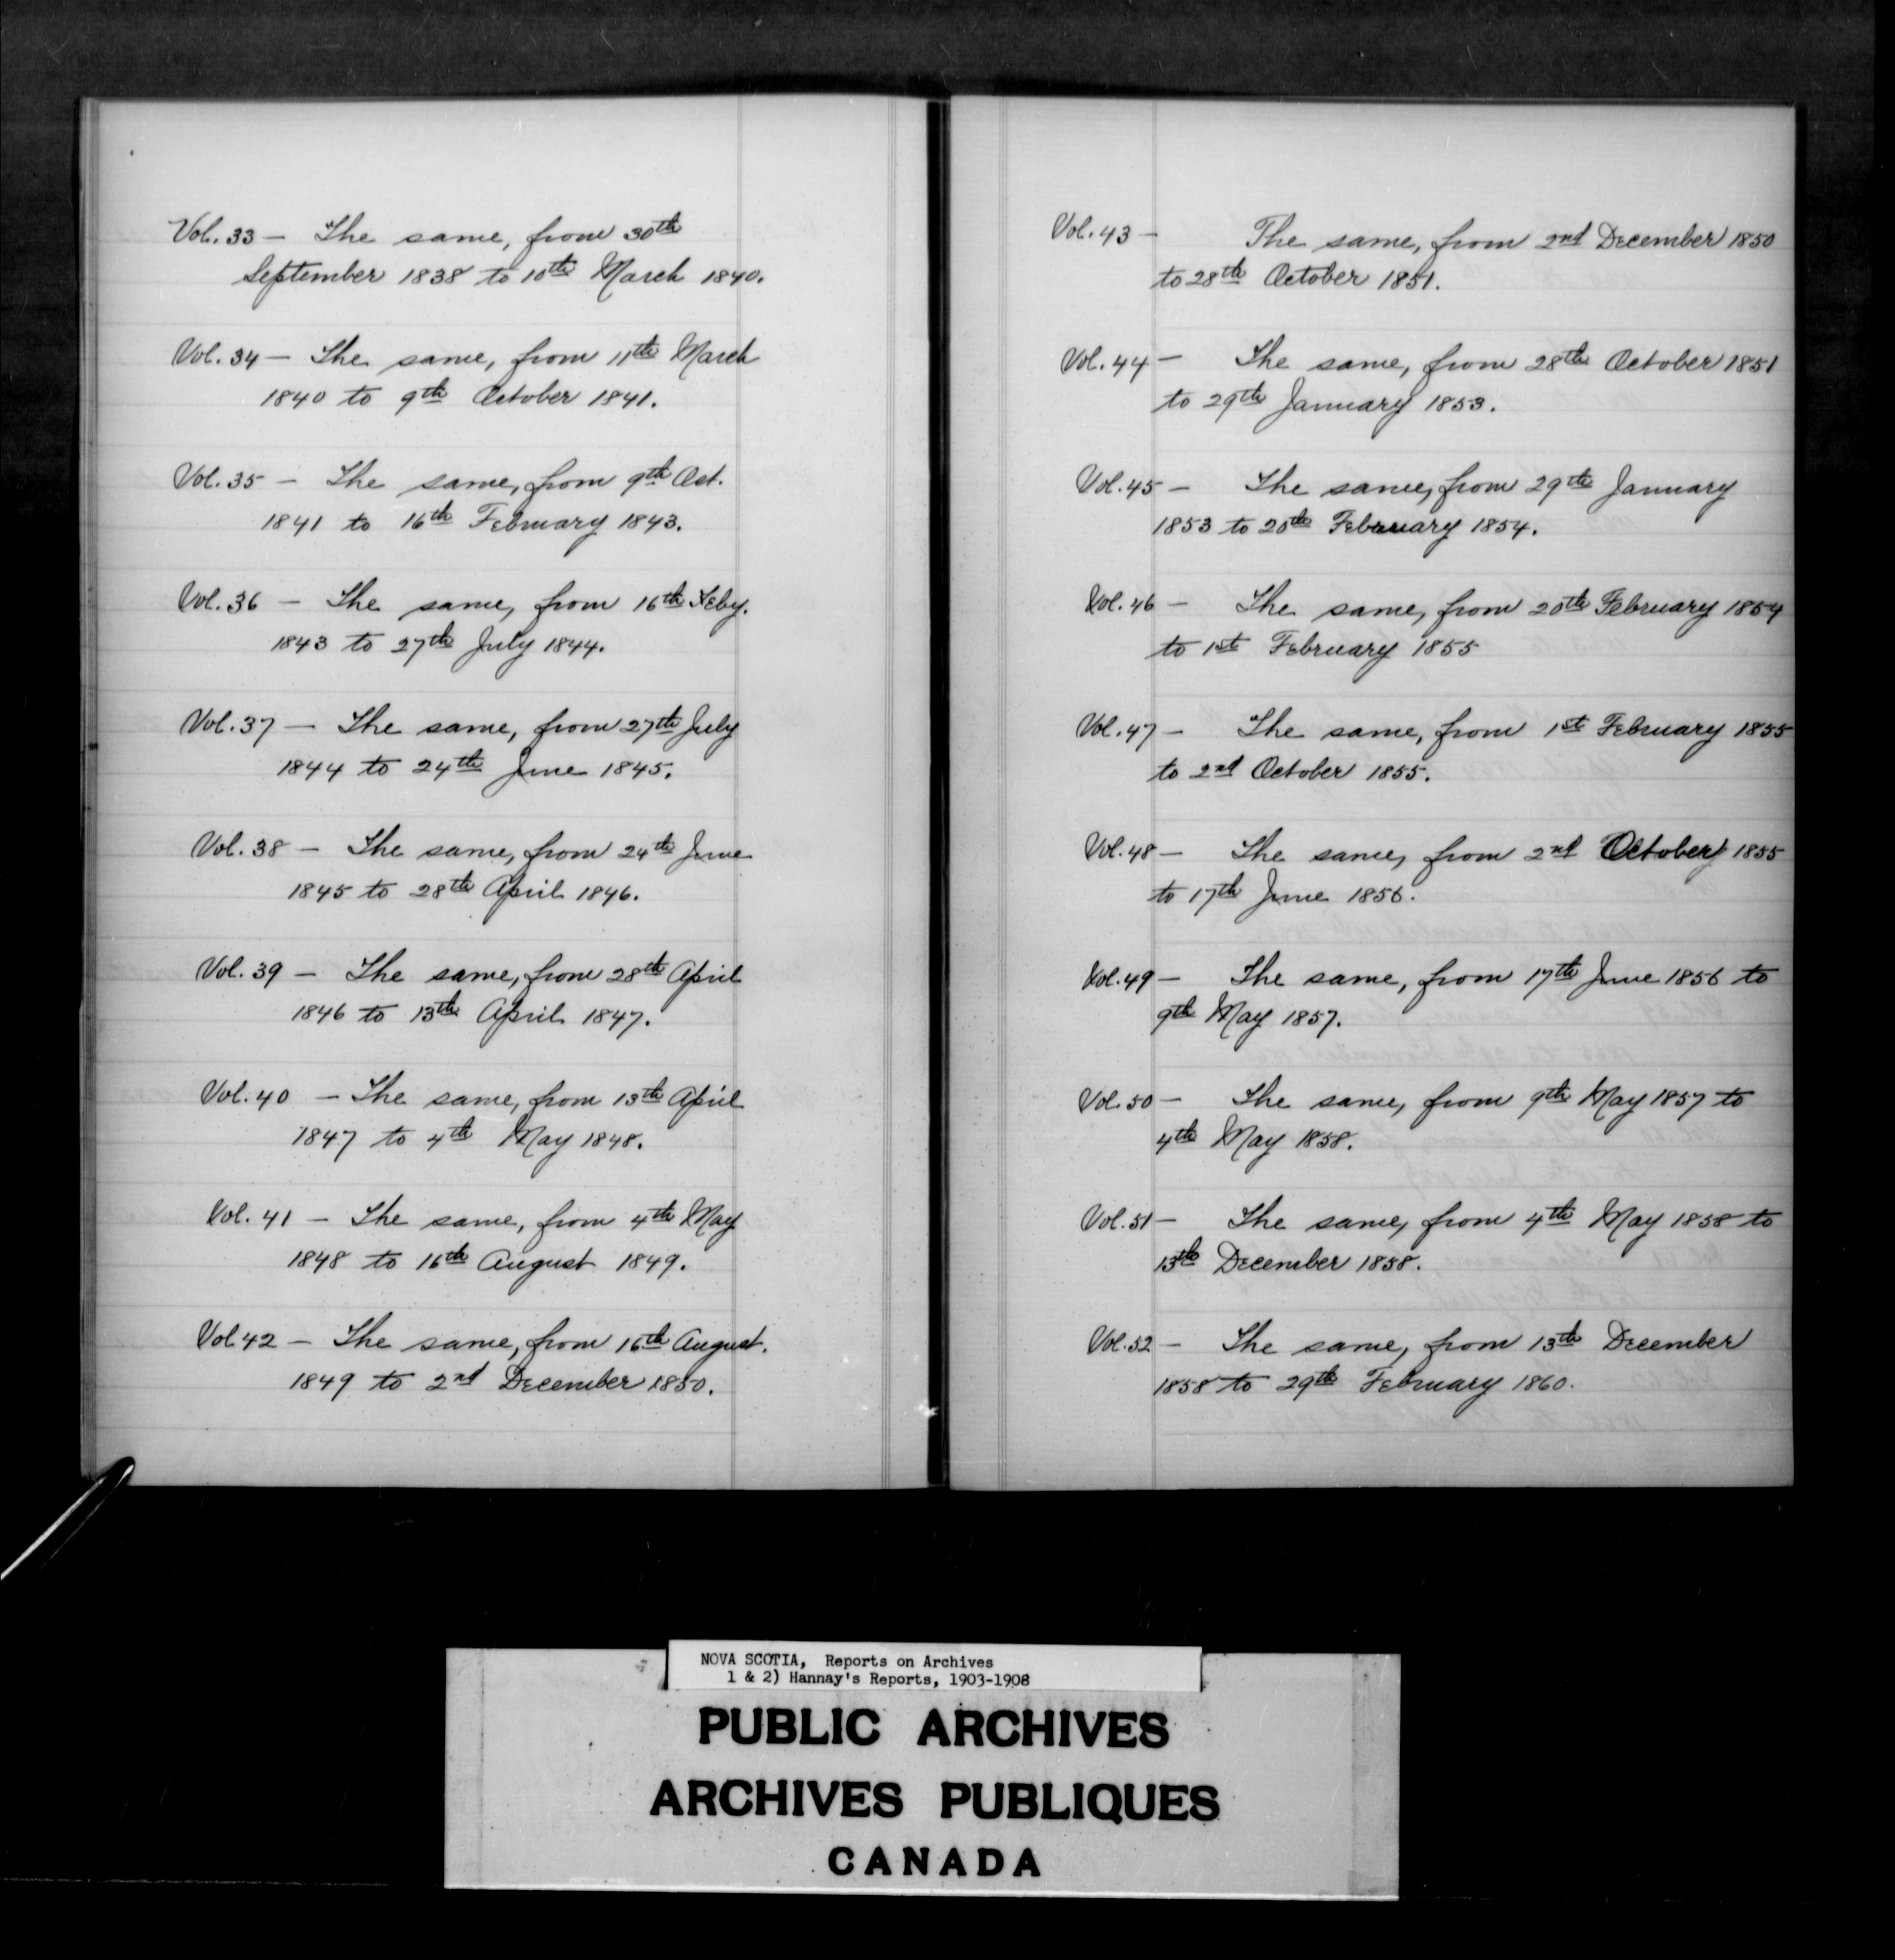 Vol. 33 — The same, from 30th
September 1838 to 10th March 1840.
Vol. 34 — The same, from 11th March
1840 to 9th October 1841.
Vol. 35 — The same, from 9th Oct.
1841 to 16th February 1843.
Vol. 36 — The same, from 16th Feby.
1843 to 27th July 1844.
Vol. 37 — The same, from 27th July
1844 to 24th June 1845.
Vol. 38 — The same, from 24th June
1845 to 28th April 1846.
Vol. 39 — The same, from 28th April
1846 to 13th April 1847.
Vol. 40 — The same, from 13th April
1847 to 4th May 1848.
Vol. 41 — The same, from 4th May
1848 to 16th August 1849.
Vol 42 — The same, from 16th August.
1849 to 2nd December 1850.
Vol. 43 — The same, from 2nd December 1850
to 28th October 1851.
Vol. 44 — The same, from 28th October 1851
to 29th January 1853.
Vol. 45 — The same, from 29th January
1853 to 20th February 1854.
Vol. 46 — The same, from 20th February 1854
to 1st February 1855
Vol. 47 — The same, from 1st February 1855
to 2nd October 1855.
Vol. 48 — The same, from 2nd October 1855
to 17th June 1856.
Vol. 49 — The same, from 17th June 1856 to
9th May 1857.
Vol. 50 — The same, from 9th May 1857 to
4th May 1858.
Vol. 51 — The same, from 4th May 1858 to
13th December 1858.
Vol. 52 — The same, from 13th December
1858 to 29th February 1860.
NOVA SCOTIA, Reports on Archives
1 & 2) Hannay's Reports, 1903-1908
PUBLIC ARCHIVES
ARCHIVES PUBLIQUES
CANADA